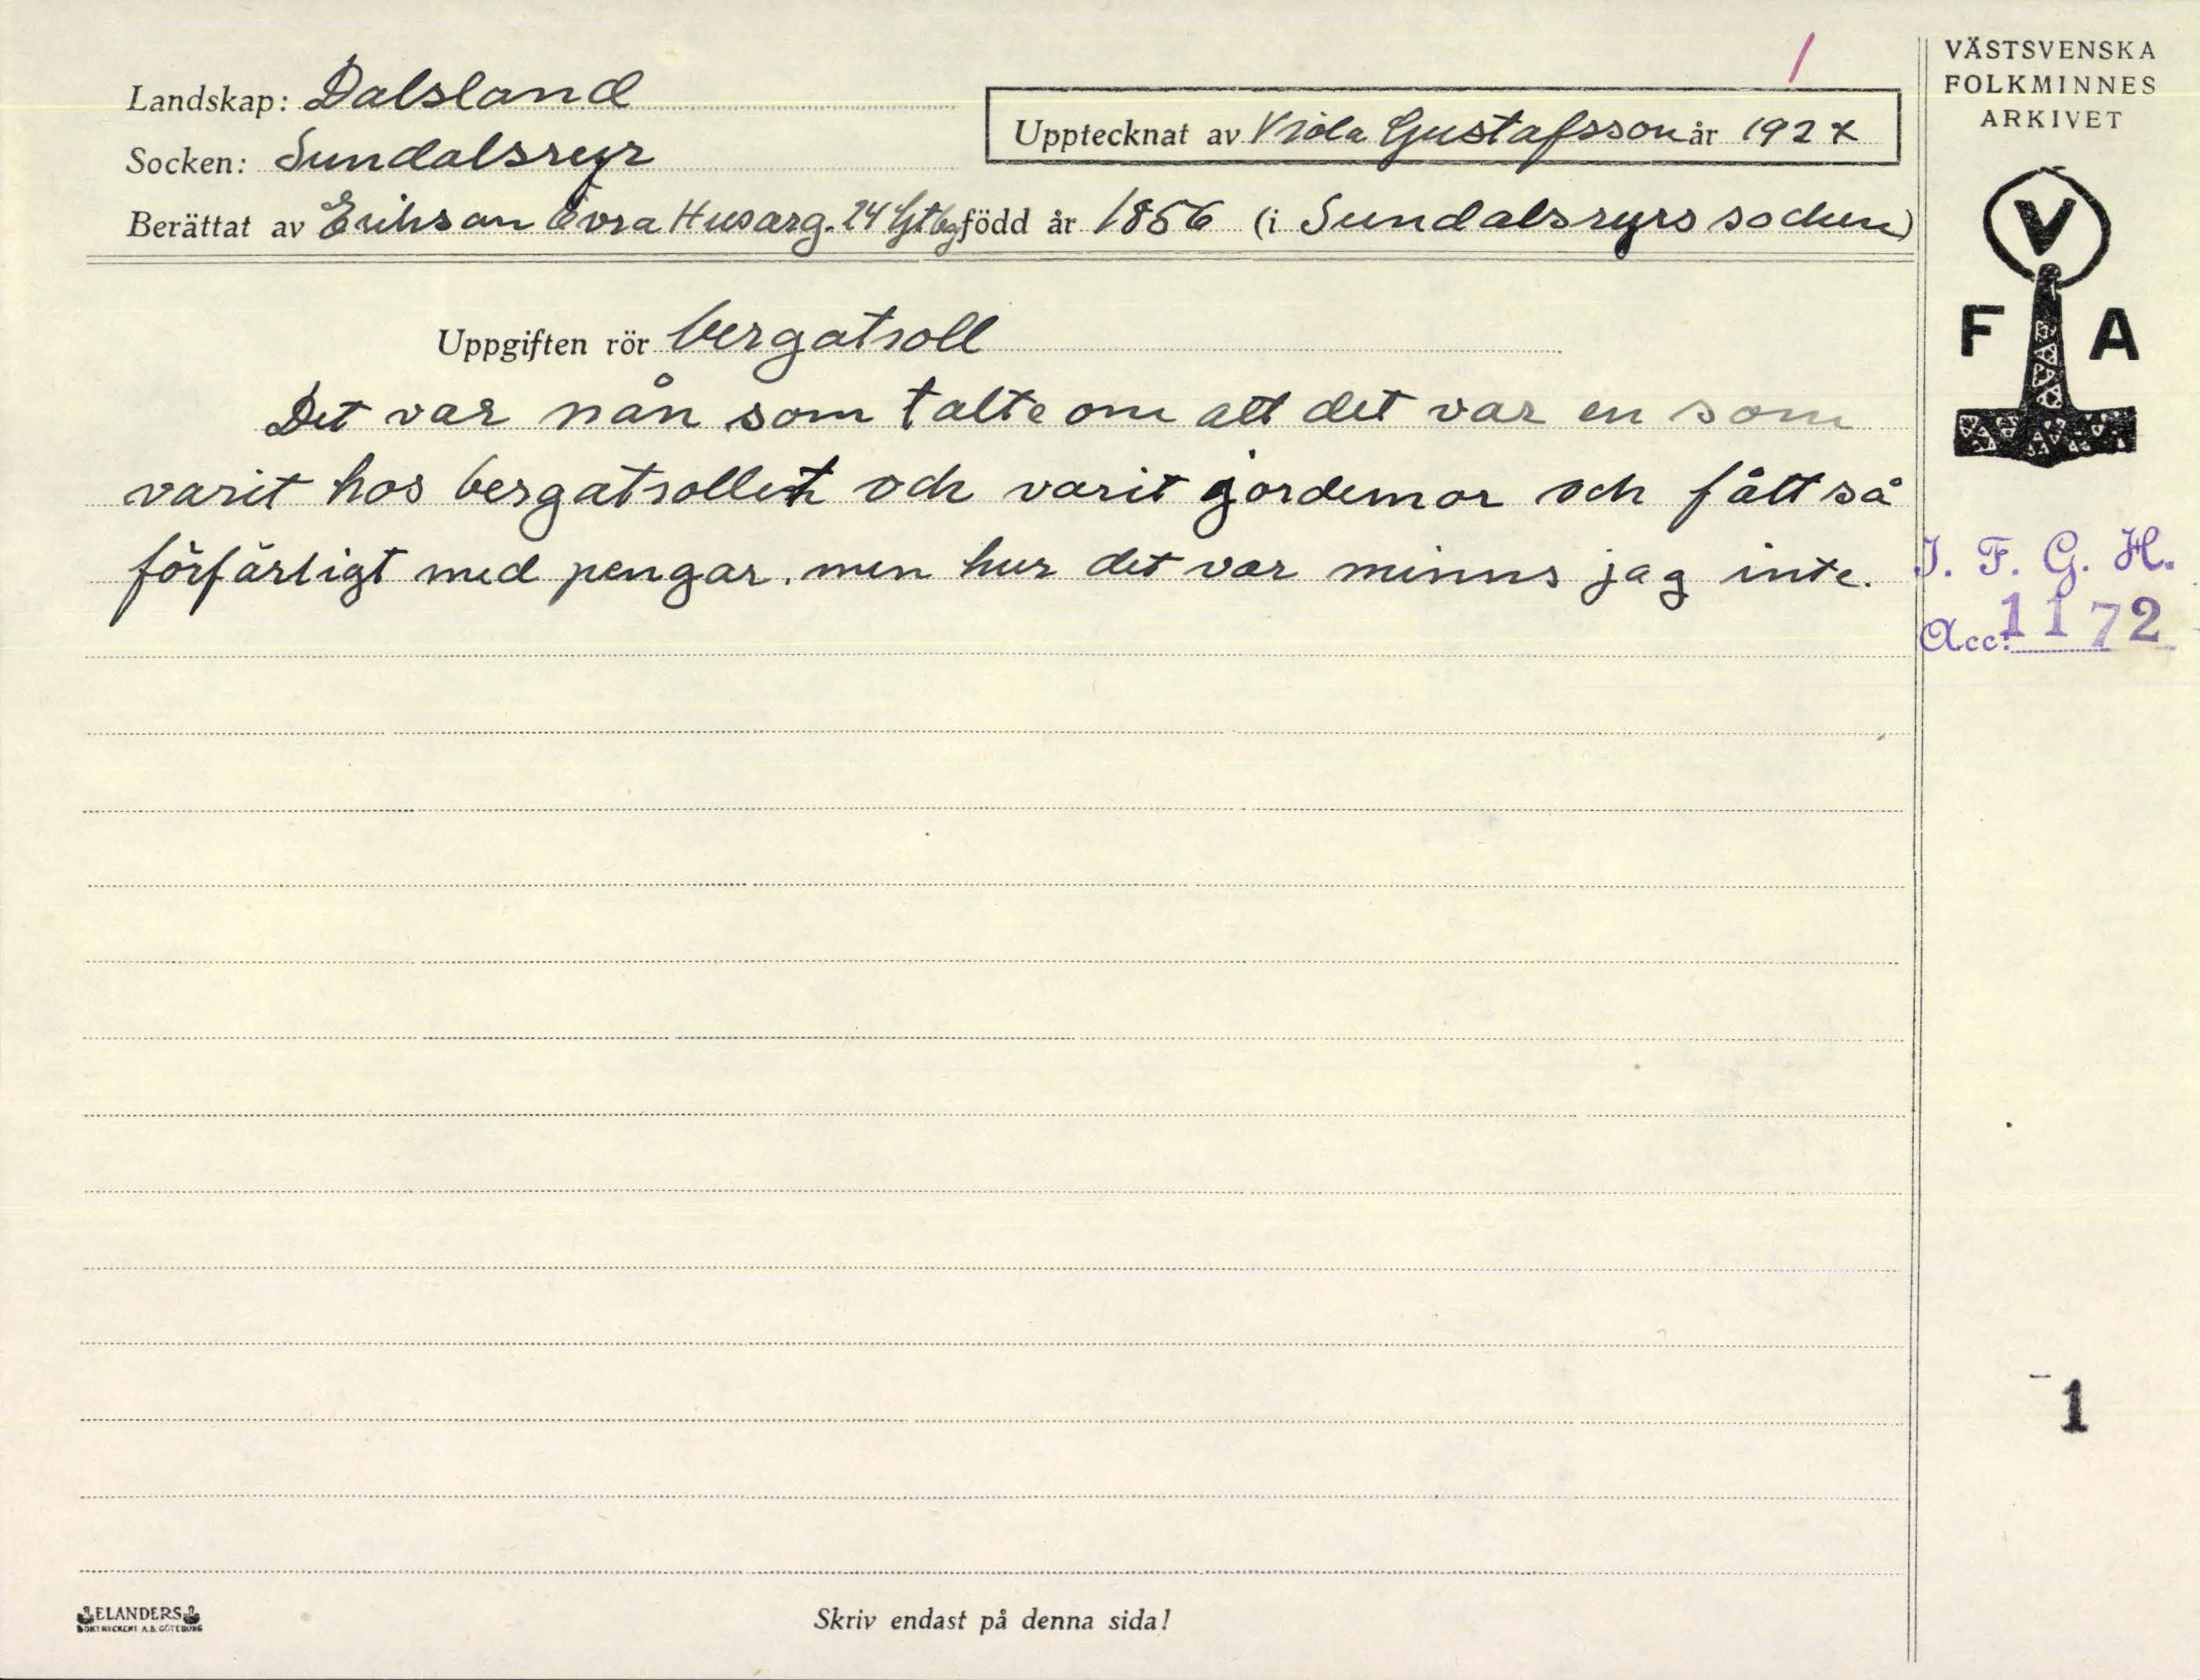 Landskap: Dalsland
Socken: Sundalsryr
Upptecknat av Viola Gustafsson år 192
Berättat av Erikson Övra Husarg. 24 Gtbg född år 1856 (i Sundalsryrs socken)
Uppgiften rör bergatroll
Det var nån som talte om att det var en som
varit hos bergatrollet och varit jordemor och fått så
förfärligt med pengar, men hur det var minns jag inte.
Skriv endast på denna sida!
ELANDERS
BOKTRYCKERI A.B. GÖTEBORG
1
VÄSTSVENSKA
FOLKMINNES
ARKIVET
V
F A
I. F. G. H.
Acc: 1172
1